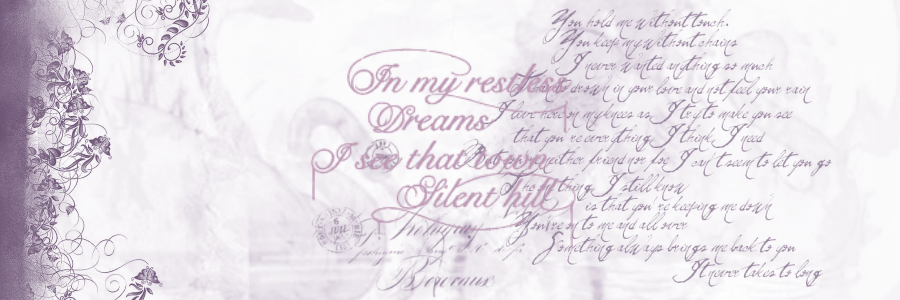 In my restless
Dreams
I see that town
Silent hill
You hold me without touch.
You keep my without chains
I never wanted anything so much
drown in your love and not feel your rain
I love here on my knees as I try to make you see
that you're everything I think I need
neither friend nor foe I can't seem to let you go
The thing I still know
is that you're keeping me down
You're on to me and all over
Something always brings me back to you
It never takes to long